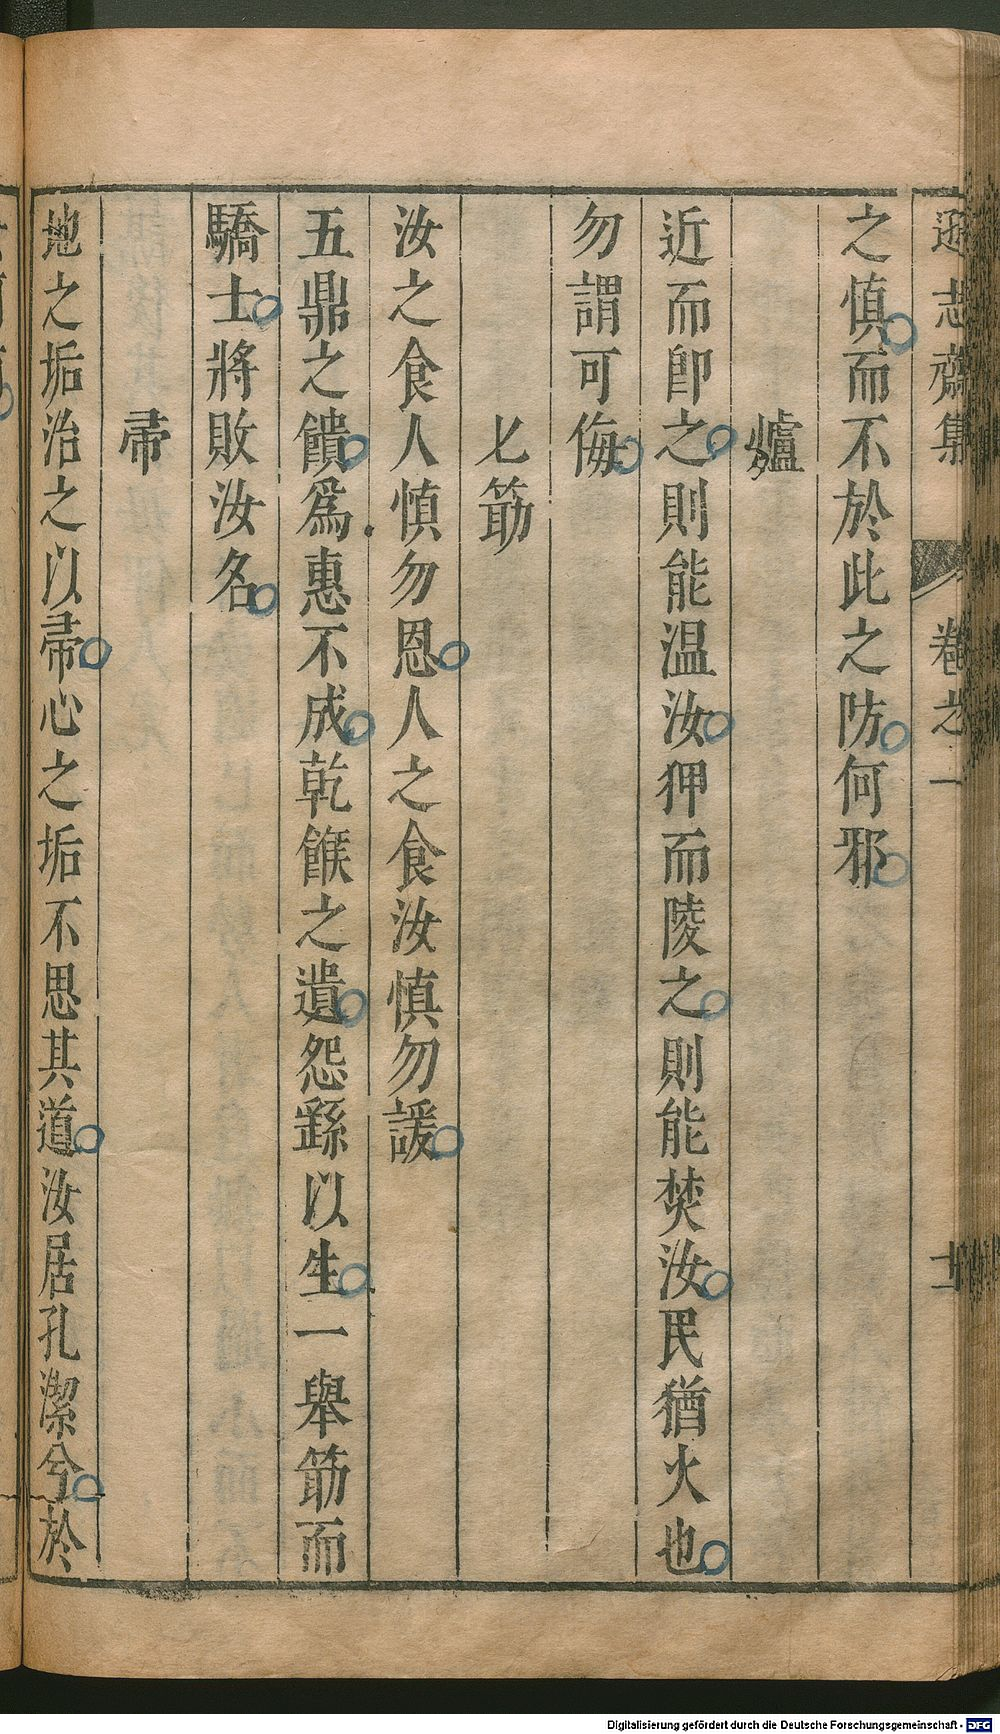 遜志齋集 卷之一 十一
之慎而不於此之防何邪
爐
近而卽之則能温汝狎而陵之則能焚汝民猶火也
勿謂可侮
匕筯
汝之食人慎勿恩人之食汝慎勿諼
五鼎之饋爲惠不成乾餱之遺怨繇以生一舉筯而
驕士將敗汝名
帚
地之垢治之以帚心之垢不思其道汝居孔潔兮於
Digitalisierung gefördert durch die Deutsche Forschungsgemeinschaft - DFG